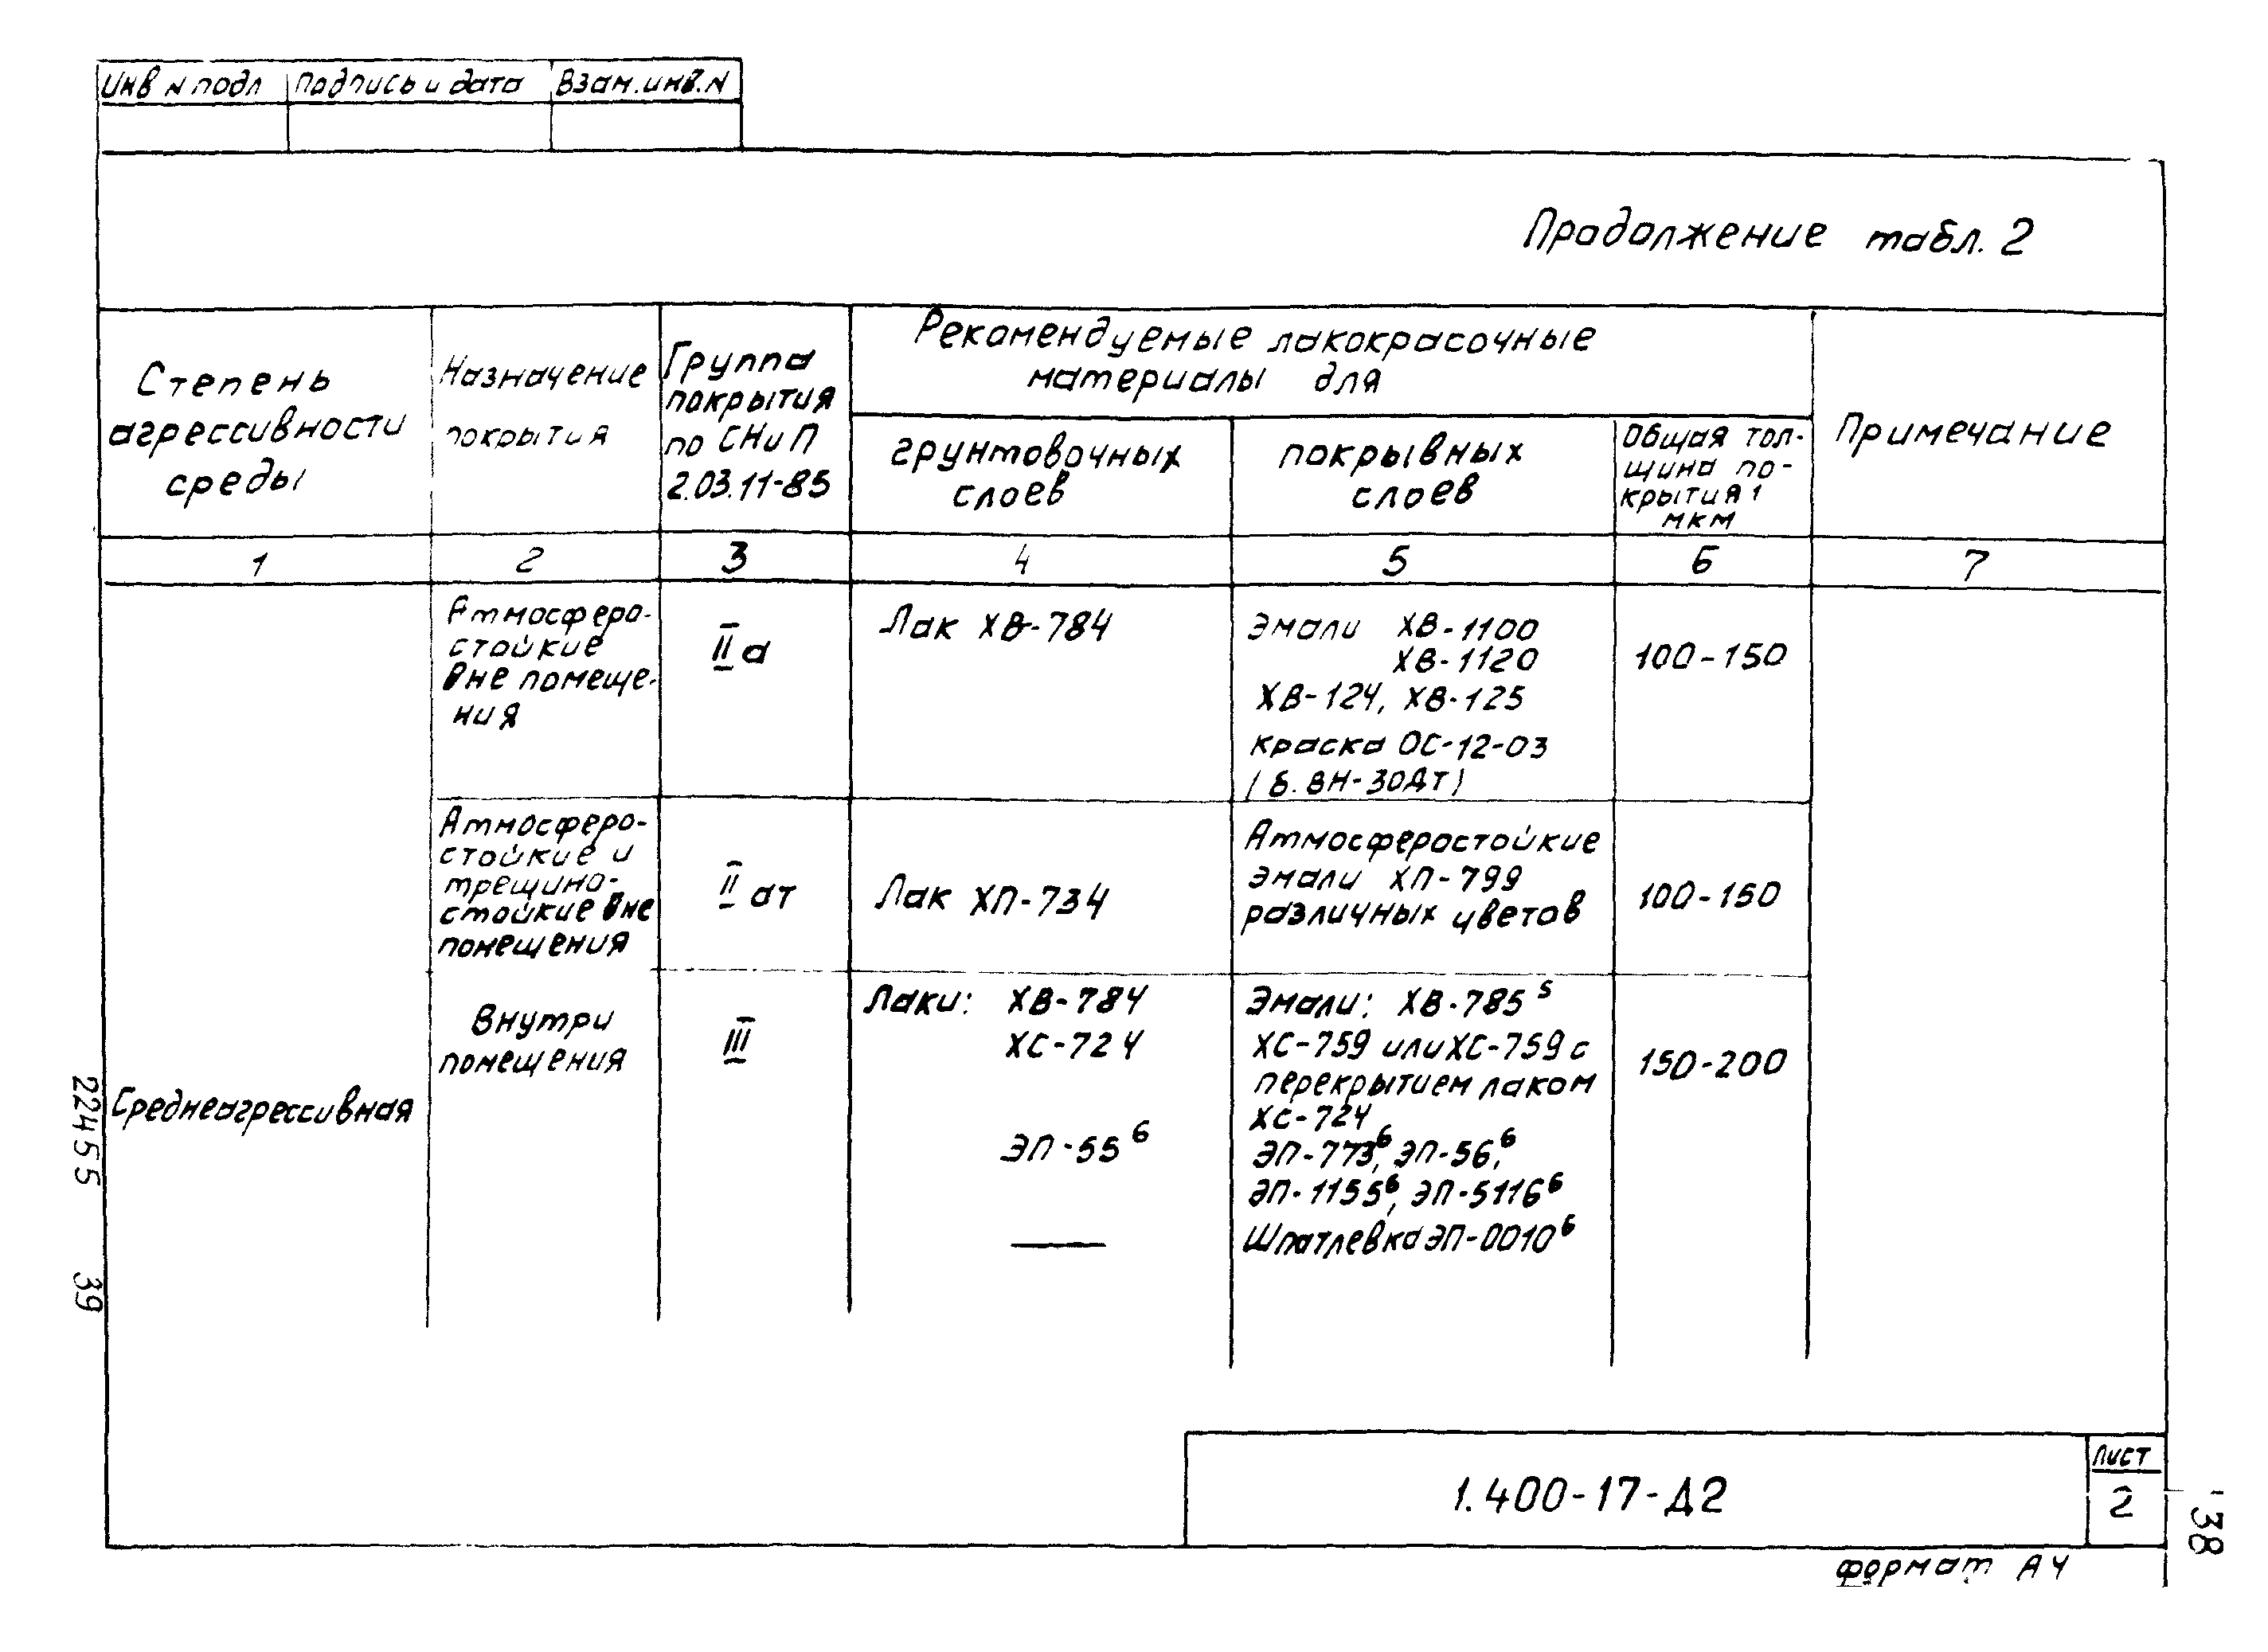 Инв N подл Подпись и дата Взам.инв.N
Продолжение табл. 2
Степень
агрессивности
среды
Назначение
покрытия
Группа
покрытия
по СНиП
2.03.11-85
Рекомендуемые лакокрасочные
материалы для
грунтовочных
слоев
покрывных
слоев
Общая тол-
щина по-
крытия¹
мкм
Примечание
1 2 3 4 5 6 7
Среднеагрессивная
Атмосферо-
стойкие
вне помеще-
ния
IIа
Лак ХВ-784
Эмали ХВ-1100
ХВ-1120
ХВ-124, ХВ-125
краска ОС-12-03
(б. ВН-30ДТ)
100-150
Атмосферо-
стойкие и
трещино-
стойкие вне
помещения
II ат
Лак ХП-734
Атмосферостойкие
эмали ХП-799
различных цветов
100-150
Внутри
помещения
III
Лаки: ХВ-784
ХС-724
ЭП-55⁶
—
Эмали: ХВ-785⁵
ХС-759 или ХС-759 с
перекрытием лаком
ХС-724
ЭП-773⁶, ЭП-56,⁶
ЭП-1155⁶, ЭП-5116⁶
Шпатлевка ЭП-0010⁶
150-200
22455 39
1.400-17-Д2
Лист
2
38
формат А4